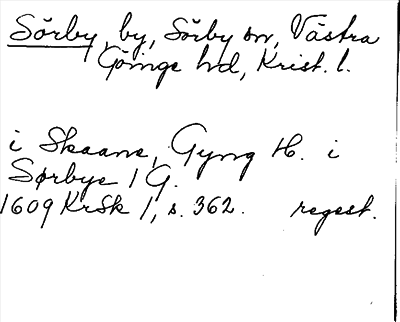 Sörby, by, Sörby sn, Västra
Göinge hd, Krist. l.
i Skaane, Gyng H. i
Sørbye 1 G.
1609 KrSk 1, s. 362. regest.